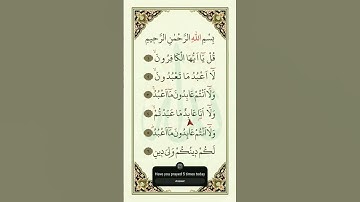 بِسْمِ اللّٰهِ الرَّحْمٰنِ الرَّحِيْمِ
قُلْ يٰٓاَيُّهَا الْكَافِرُوْنَ ۙ
لَآ اَعْبُدُ مَا تَعْبُدُوْنَ ۙ
وَلَآ اَنْتُمْ عَابِدُوْنَ مَآ اَعْبُدُ ۚ
وَلَآ اَنَا عَابِدٌ مَّا عَبَدْتُّمْ ۙ
وَلَآ اَنْتُمْ عَابِدُوْنَ مَآ اَعْبُدُ ۗ
لَكُمْ دِيْنُكُمْ وَلِيَ دِيْنِ
Have you prayed 5 times today